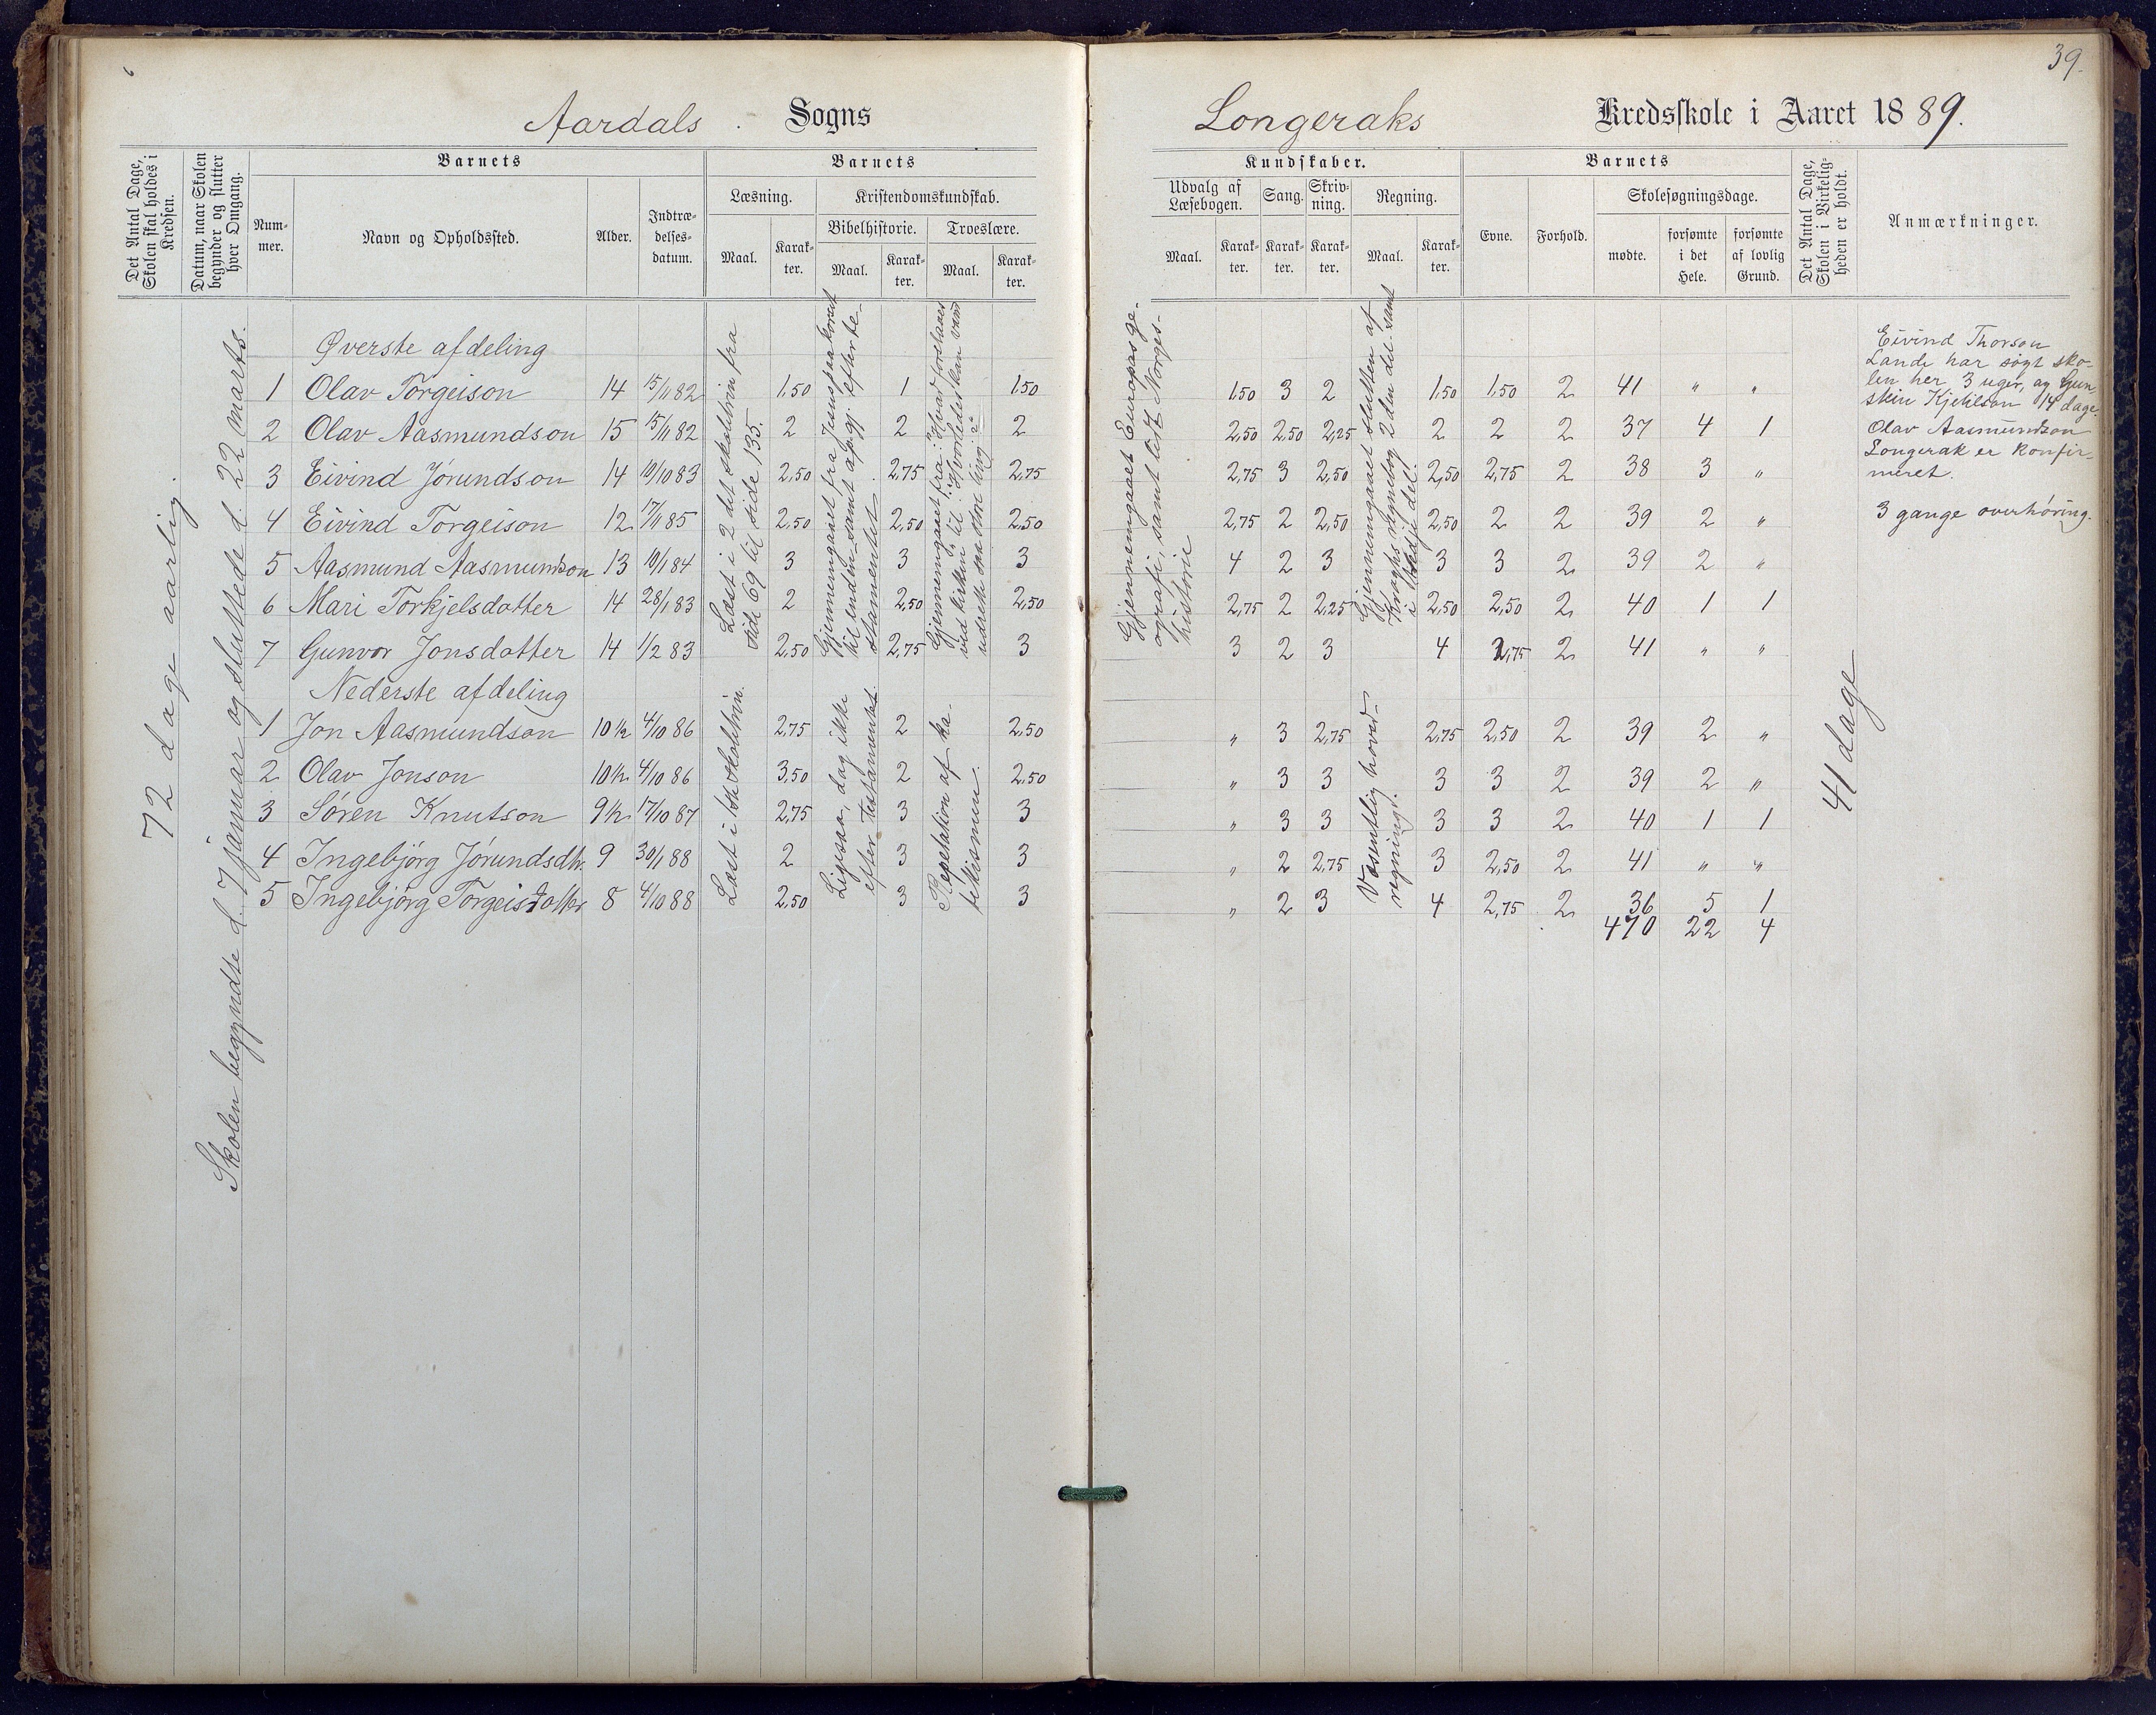 39.
Aardals Sogns
Longeraks Kredsskole i Aaret 1889.
Det Antal Dage, Skolen skal holdes i Kredsen.
Datum, naar Skolen begynder og slutter hver Omgang.
Barnets
Nummer.
Navn og Opholdssted.
Alder.
Indtrædelsesdatum.
Barnets
Læsning.
Maal.
Karakter.
Kristendomskundskab.
Bibelhistorie.
Maal.
Karakter.
Troeslære.
Maal.
Karakter.
Kundskaber.
Udvalg af Læsebogen.
Maal.
Karakter.
Sang.
Karakter.
Skrivning.
Karakter.
Regning.
Maal.
Karakter.
Barnets
Evne.
Forhold.
Skolesøgningsdage.
mødte.
forsømte i det Hele.
forsømte af lovlig Grund.
Det Antal Dage, Skolen i Virkeligheden er holdt.
Anmærkninger.
72 dage aarlig.
Skolen begyndte d. 7 januar og sluttede d. 22 marts.
Øverste afdeling
1 Olav Torgeison 14 15/11 82 1,50 1 1,50 1,50 3 2 1,50 1,50 2 41 " "
2 Olav Aasmundson 15 15/11 82 2 2 2 2,50 2,50 2,25 2 2 2 37 4 1
3 Eivind Jørundson 14 10/10 83 2,50 2,75 2,75 2,75 3 2,50 2,50 2,75 2 38 3 "
4 Eivind Torgeison 12 17/11 85 2,50 2,50 2,50 2,75 2 2,50 2,50 2 2 39 2 "
5 Aasmund Aasmundson 13 10/1 84 3 3 3 4 2 3 3 3 2 39 2 "
6 Mari Torkjelsdatter 14 28/1 83 2 2,50 2,50 2,75 2 2,25 2,50 2,50 2 40 1 1
7 Gunvor Jonsdatter 14 1/2 83 2,50 2,75 3 3 2 3 4 2,75 2 41 " "
Nederste afdeling
1 Jon Aasmundson 10½ 4/10 86 2,75 2 2,50 " 3 2,75 2,75 2,50 2 39 2 "
2 Olav Jonson 10½ 4/10 86 3,50 2 2,50 " 3 3 3 3 2 39 2 "
3 Søren Knutson 9½ 17/10 87 2,75 3 3 " 3 3 3 3 2 40 1 1
4 Ingebjørg Jørundsdtr. 9 30/1 88 2 3 3 " 2 2,75 3 2,50 2 41 " "
5 Ingebjørg Torgeisdatter 8 4/10 88 2,50 3 3 " 2 3 4 2,75 2 36 5 1
470 22 4
Læst i 2 det skoletrin fra
side 69 til side 135.
Gjennemgaaet fra Jesus paa korset
til enden samt af gj. efter te-
stamentet
Gjennemgaaet fra: "Hvad forstaaes
ved kirken" til: "Hvorledes kan vand
udrette saa store ting?"
Læst i 1ste skoletrin.
Ligesaa, dog ikke
efter Testamentet.
Repetation af ka-
tekismen.
Gjennemgaaet Europas ge-
ografi, samt læst Norges-
historie
Gjennemgaaet slutten af
Kraghs regnebog 2den del samt
i tredje del.
Væsentlig hoved-
regning.
41 dage
Eivind Thorson
Lande har søgt sko-
len her 3 uger, og Gun-
stein Kjetilson 14 dage.
Olav Aasmundson
Longerak er konfir-
meret.
3 gange overhøring.